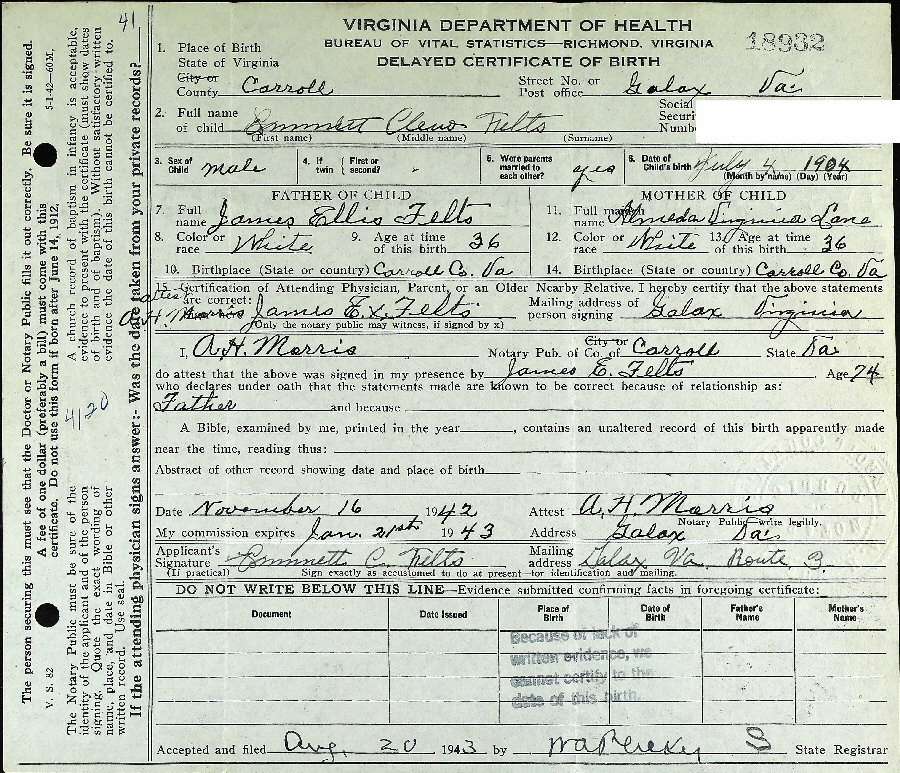 VIRGINIA DEPARTMENT OF HEALTH
BUREAU OF VITAL STATISTICS—RICHMOND, VIRGINIA
DELAYED CERTIFICATE OF BIRTH
18932
41
1. Place of Birth
State of Virginia
City or
County Carroll
Street No. or
Post office Galax Va.
2. Full name
of child Emmett Cleve Felts
(First name) (Middle name) (Surname)
Social
Securi
Numb
3. Sex of Child male
4. If twin { First or second?
5. Were parents married to each other? yes
6. Date of Child's birth July 4 1904
(Month by name) (Day) (Year)
FATHER OF CHILD
MOTHER OF CHILD
7. Full name James Ellis Felts
11. Full maiden name Almeda Virginia Lane
8. Color or race White 9. Age at time of this birth 36
12. Color or race White 13. Age at time of this birth 36
10. Birthplace (State or country) Carroll Co. Va
14. Birthplace (State or country) Carroll Co. Va
15. Certification of Attending Physician, Parent, or an Older Nearby Relative. I hereby certify that the above statements
are correct: James E. x Felts
A H Morris
(Only the notary public may witness, if signed by x)
Mailing address of
person signing Galax Virginia
I, A.H. Morris Notary Pub. of City or Co. of Carroll State Va.
do attest that the above was signed in my presence by James E. Felts Age 74
who declares under oath that the statements made are known to be correct because of relationship as:
Father and because
A Bible, examined by me, printed in the year , contains an unaltered record of this birth apparently made
near the time, reading thus:
Abstract of other record showing date and place of birth
Date November 16 1942 Attest A.H. Morris
Notary Public—write legibly.
My commission expires Jan. 21st 1943 Address Galax Va.
Applicant's
Signature Emmett C. Felts
Mailing
address Galax Va. Route 3.
(If practical) Sign exactly as accustomed to do at present—for identification and mailing.
DO NOT WRITE BELOW THIS LINE—Evidence submitted confirming facts in foregoing certificate:
Document Date Issued Place of Birth Date of Birth Father's Name Mother's Name
Because of lack of
written evidence, we
cannot certify to the
date of this birth.
Accepted and filed Aug. 20 1943 by State Registrar
The person securing this must see that the Doctor or Notary Public fills it out correctly. Be sure it is signed.
A fee of one dollar (preferably a bill) must come with this
certificate. Do not use this form if born after June 14, 1912.
V. S. 82
5-1-42—60M.
The Notary Public must be sure of the
identity of the applicant and of the person
signing. Quote the exact wording of
name, place, and date in Bible or other
written record. Use seal.
A church record of baptism in infancy is acceptable,
evidence to present with the certificate (must show dates
of birth and of baptism). Without satisfactory written
evidence the date of this birth cannot be certified to.
4/20
If the attending physician signs answer:- Was the date taken from your private records?